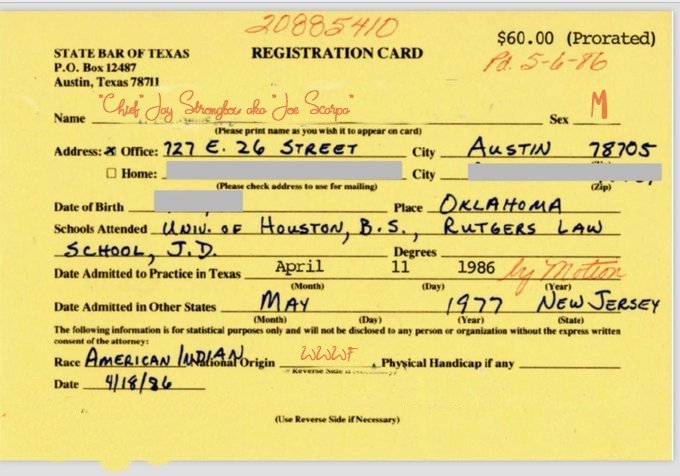 20885410
$60.00 (Prorated)
Pd. 5-6-86
STATE BAR OF TEXAS
P.O. Box 12487
Austin, Texas 78711
REGISTRATION CARD
"Chief" Jay Strongbow aka "Joe Scarpa"
Name
Sex M
(Please print name as you wish it to appear on card)
Address: Office: 727 E. 26 STREET City AUSTIN 78705
Home: City
(Please check address to use for mailing) (Zip)
Date of Birth Place OKLAHOMA
Schools Attended UNIV. OF HOUSTON, B.S., RUTGERS LAW
SCHOOL, J.D. Degrees
Date Admitted to Practice in Texas April 11 1986 by Motion
(Month) (Day) (Year)
Date Admitted in Other States MAY 1977 NEW JERSEY
(Month) (Day) (Year) (State)
The following information is for statistical purposes only and will not be disclosed to any person or organization without the express written
consent of the attorney:
Race AMERICAN INDIAN National Origin WWWF Physical Handicap if any
Reverse Side if
Date 4/18/86
(Use Reverse Side if Necessary)